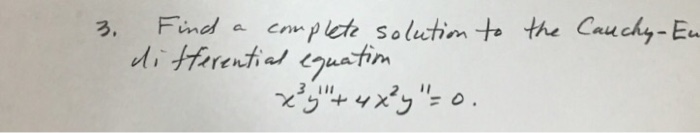 3. Find a complete solution to the Cauchy-Eu
differential equation
x³y''' + 4x²y'' = 0.